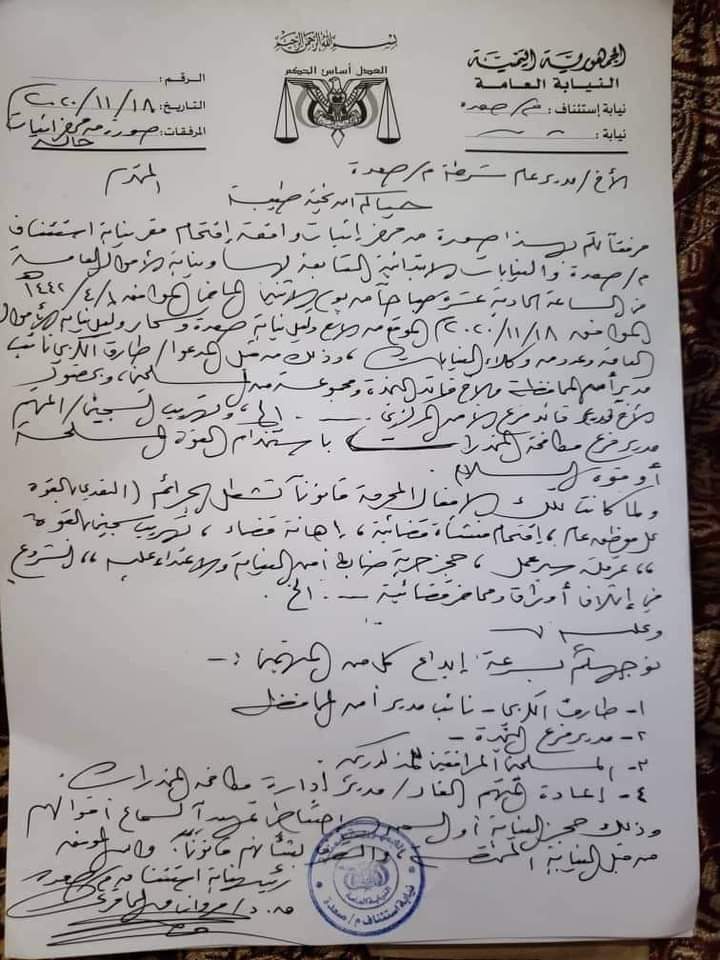 بسم الله الرحمن الرحيم
الجمهورية اليمنية
النيابة العامة
نيابة إستئناف : م/ صعدة
نيابة :
العدل أساس الحكم
الرقم :
التاريخ: ٢٠٢٠/١١/١٨
المرفقات: صورة من محضر اثبات
حالة
الأخ/ مدير عام شرطة م/ صعدة المحترم
حياكم الله تحية طيبة
مرفقاً لكم بهذا صورة من محضر إثبات واقعة إقتحام مقر نيابة استئناف
م/ صعدة والنيابات الابتدائية التابعة لها ونيابة الأموال العامة
في الساعة الحادية عشرة صباحاً من يوم الموافق ١٤٤٢/٤/ هـ
الموافق ٢٠٢٠/١١/١٨م الموقع من وكيل نيابة صعدة وسحار ووكيل نيابة الأموال
العامة وعدد من وكلاء النيابات، وذلك من قبل المدعو/ طارق نائب
مدير أمن المحافظة والأخ قائد النجدة ومجموعة من المسلحين، وبحضور
الأخ قائد فرع الأمن المركزي ـــ الخ، وتهريب السجين/ المتهم
مدير فرع مكافحة المخدرات باستخدام القوة المسلحة
أو قوة السلاح.
ولما كانت تلك الأفعال المجرمة قانوناً تشكل جرائم (التعدي بالقوة
على موظف عام، إقتحام منشأة قضائية، إهانة قضاء، تهريب سجين بالقوة
،، عرقلة سير عمل، حجز حرية ضابط أمن النيابة والاعتداء عليه،، الشروع
في إتلاف أوراق ومحاضر قضائية ـــ الخ.
وعليه
نوجهكم بسرعة إيداع كل من المتهمين :-
١- طارق - نائب مدير أمن المحافظة
٢- مدير فرع النجدة -
٣- المسلحين المرافقين للمذكورين.
٤- إعادة المتهم الفار/ مدير إدارة مكافحة المخدرات.
وذلك حجز النيابة أو السجن احتياطياً تمهيداً لسماع أقوالهم
من قبل النيابة المختصة والتصرف بشأنهم قانوناً. والله الموفق
رئيس نيابة استئناف م/ صعدة
نيابة استئناف م/ صعدة
النيابة العامة